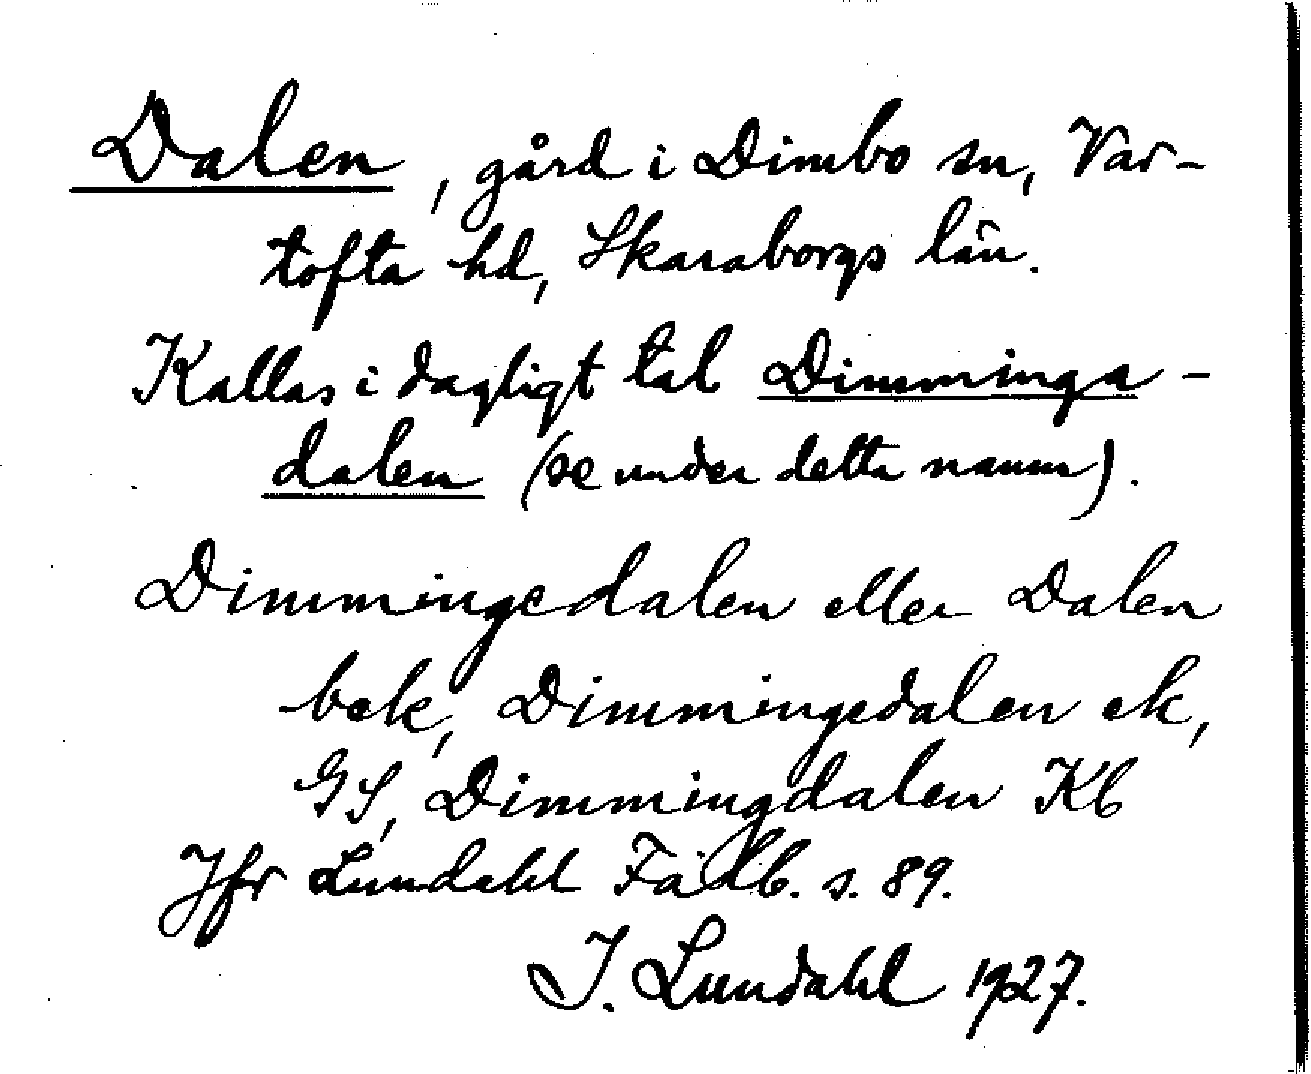 Dalen, gård i Dimbo sn, Var-
tofta hd, Skaraborgs län.
Kallas i dagligt tal Dimminga-
dalen (se under detta namn).
Dimmingedalen eller Dalen
bek, Dimmingedalen ek,
GS, Dimmingdalen Kb
Jfr Lundahl Falb. s. 89.
I. Lundahl 1927.